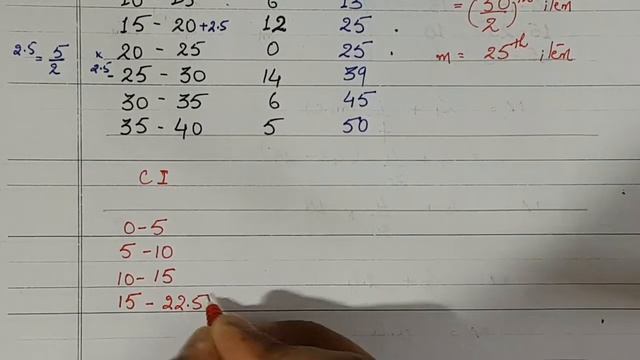 10 - 15 . 6 13
15 - 20 +2.5 12 25 .
20 - 25 0 25 .
25 - 30 14 39
30 - 35 6 45
35 - 40 5 50
2.5 = 5/2
x
2.5-
= (50/2)th item
m = 25th item
CI
0-5
5 -10
10 - 15
15 - 22.5